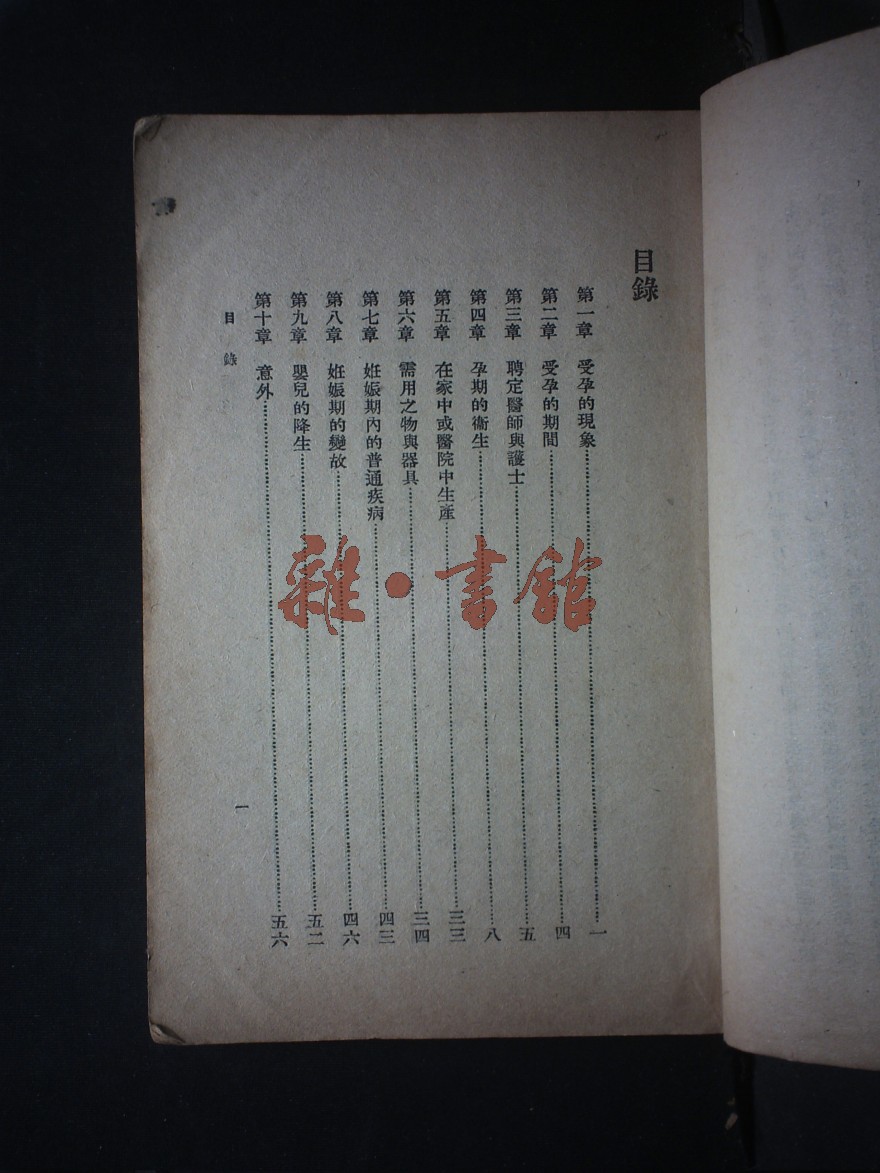 目錄
第一章 受孕的現象………一
第二章 受孕的期間………四
第三章 聘定醫師與護士………五
第四章 孕期的衞生………八
第五章 在家中或醫院中生產………三三
第六章 需用之物與器具………三四
第七章 姙娠期內的普通疾病………四三
第八章 姙娠期的變故………四六
第九章 嬰兒的降生………五二
第十章 意外………五六
目錄 一
雜·書館